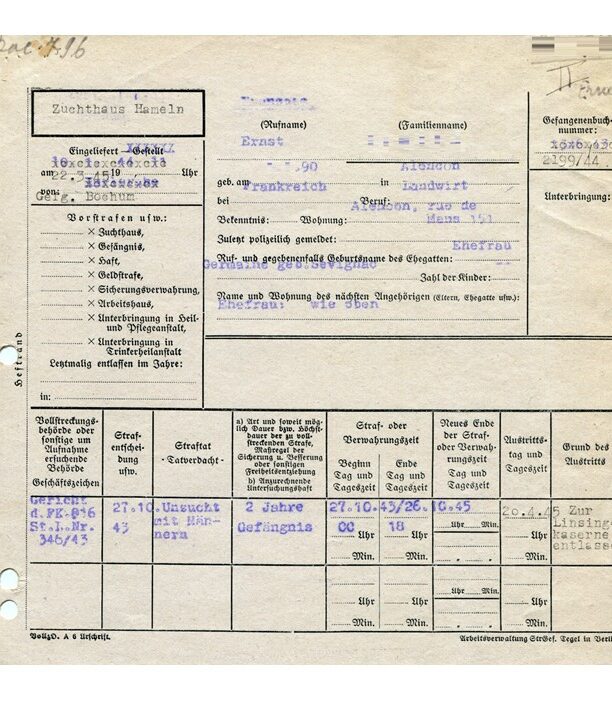 Zuchthaus Hameln
(Rufname)
(Familienname)
Ernst
Gefangenenbuch-
nummer:
2199/44
Eingeliefert — Gestellt
am 22.3.45 19 Uhr
von: Gefg. Bochum
.90
Alencon
geb. am
in
Frankreich
Landwirt
bei
Beruf:
Alencon, rue de
Bekenntnis: Wohnung: Mans 151
Unterbringung:
Zuletzt polizeilich gemeldet:
Ehefrau
Ruf- und gegebenenfalls Geburtsname des Ehegatten:
Germaine geb. Sevignac
Zahl der Kinder: --
Name und Wohnung des nächsten Angehörigen (Eltern, Ehegatte usw.):
Ehefrau: wie oben
Vorstrafen usw.:
× Zuchthaus,
× Gefängnis,
× Haft,
× Geldstrafe,
× Sicherungsverwahrung,
× Arbeitshaus,
× Unterbringung in Heil-
und Pflegeanstalt,
× Unterbringung in
Trinkerheilanstalt
Letztmalig entlassen im Jahre:
in:
Heftrand
Vollstreckungs-
behörde oder
sonstige um
Aufnahme
ersuchende
Behörde
Geschäftszeichen
Straf-
entschei-
dung
usw.
Straftat
-Tatverdacht-
a) Art und soweit mög-
lich Dauer bzw. Höchst-
dauer der zu voll-
streckenden Strafe,
Maßregel der
Sicherung u. Besserung
oder sonstigen
Freiheitsentziehung
b) Anzurechnende
Untersuchungshaft
Straf- oder
Verwahrungszeit
Beginn
Tag und
Tageszeit
Ende
Tag und
Tageszeit
Neues Ende
der Straf-
oder Verwah-
rungszeit
Tag und
Tageszeit
Austritts-
tag und
Tageszeit
Grund des
Austritts
Gericht
d.FK 916
St.L.Nr.
346/43
27.10.
43
Unzucht
mit Män-
nern
2 Jahre
Gefängnis
27.10.43/26.10.45
00 Uhr
Min.
18 Uhr
Min.
Uhr Min.
20.4.45
Uhr
Min.
Zur
Linsing
kaserne
entlass
Uhr
Min.
Uhr
Min.
Uhr Min.
Uhr
Min.
VollzO. A 6 Urschrift.
Arbeitsverwaltung StrGef. Tegel in Berl